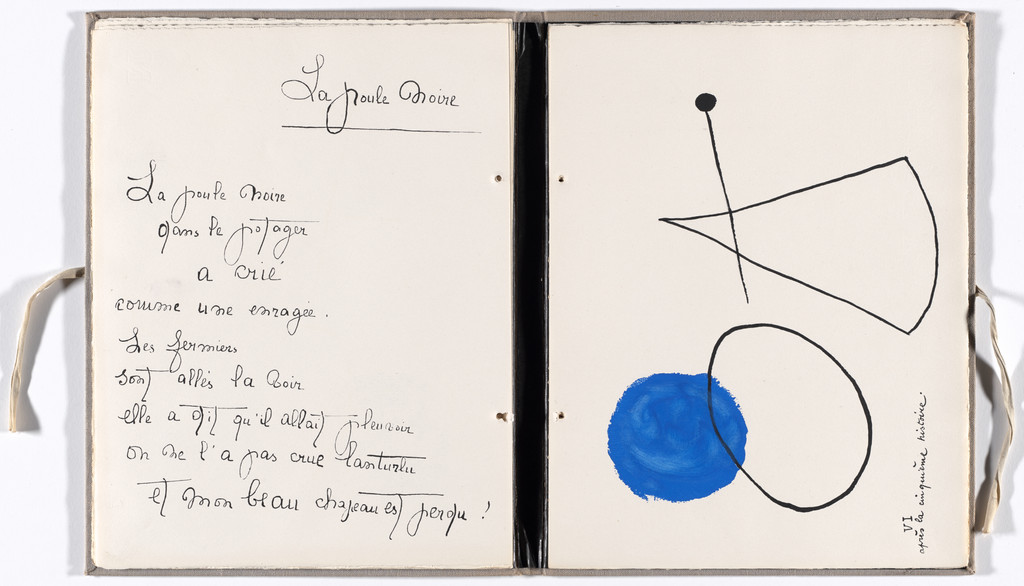 La poule Noire
La poule Noire
dans le potager
a crié
comme une enragée.
Les fermiers
sont allés la voir
elle a dit qu'il allait pleuvoir
on ne l'a pas crue lanturlu
et mon beau chapeau est perdu !
VI
après la cinquième histoire.